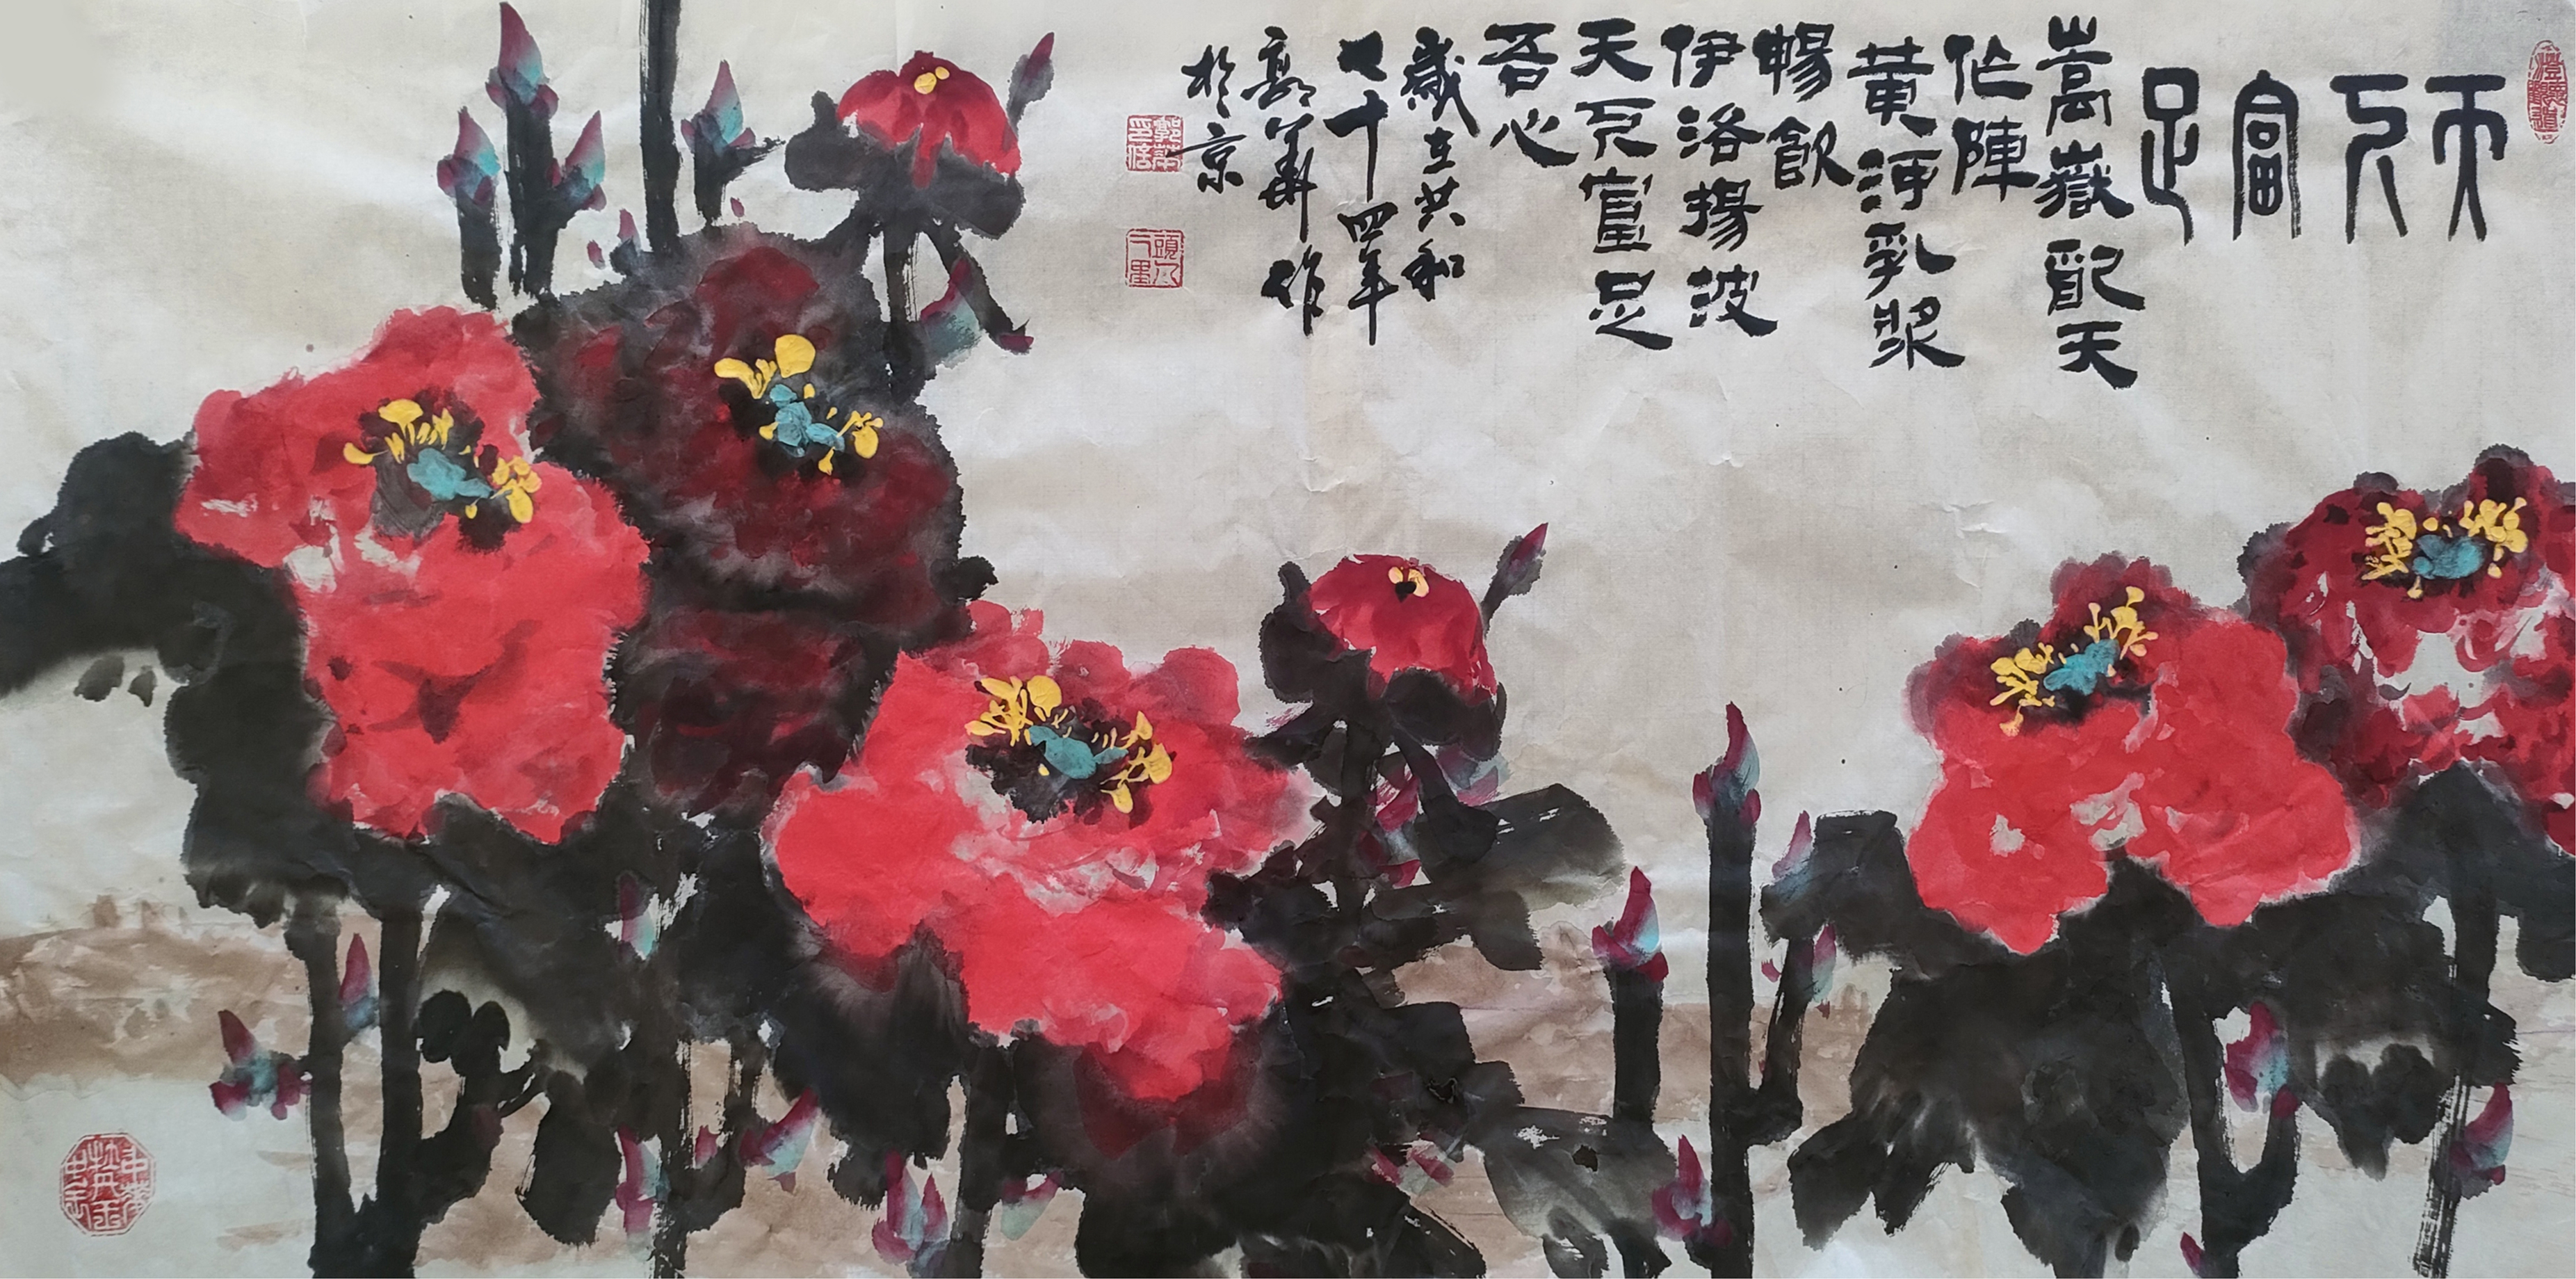 天下富足
嵩嶽配天
作陣
黄河乳漿
暢飲
伊洛揚波
天下富足
吾心
歲在共和
七十四年
郭作
於京